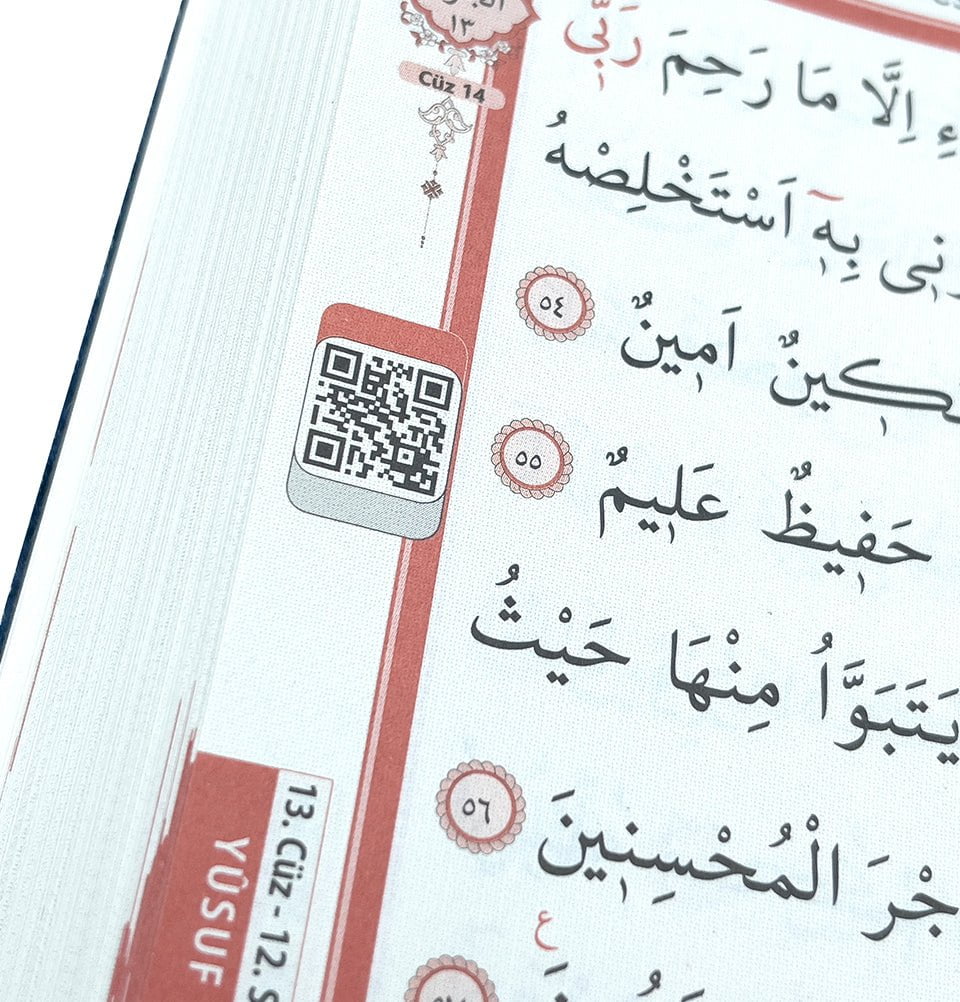 ١٣
Cüz 14
اِلَّا مَا رَحِمَ رَبّٖي
بِهٖٓ اَسْتَخْلِصْهُ
اَمٖينٌ ٥٤
حَفٖيظٌ عَلٖيمٌ ٥٥
يَتَبَوَّاُ مِنْهَا حَيْثُ
الْمُحْسِنٖينَ ٥٦
ع
13. Cüz - 12.
YÛSUF